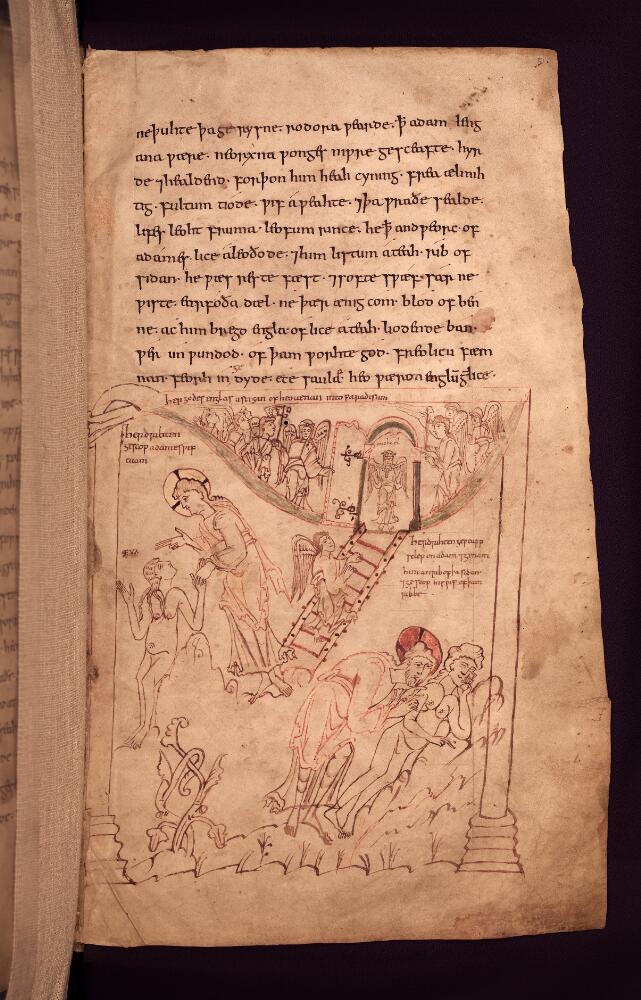 ne þuhte þa ge rysne. rodora wearde. ꝥ adam leng
ana wære. neorxna wonges niwre gesceafte. hyr
de ⁊ healdend. forþon him heah cyning. frea ælmih
tig. fultum tiode. wif aweahte. ⁊ þa wraðe sealde.
lifes leoht fruma. leofum rince. he ꝥ andweorc. of
adames. lice aleoðode. ⁊ him listum ateah. rib of
sidan. he wæs reste fæst. ⁊ softe swæf. sar ne
wiste. earfoða dæl. ne þær ænig com. blod of ben
ne. ac him brego engla. of lice ateah. liodende ban.
wer un wundod. of þam worhte god. freolicu fæm
nan. feorh in ge dyde. ece saula. heo wæron englū gelice.
her godes englas astigan of heouenan into paradisum
michael
her drihten
gesceop adames wif
euam
eua
her drihten gewearp
slæp on adam ⁊ genam
him an rib of þa sidan.
⁊ gesceop his wif of þam
ribbe.